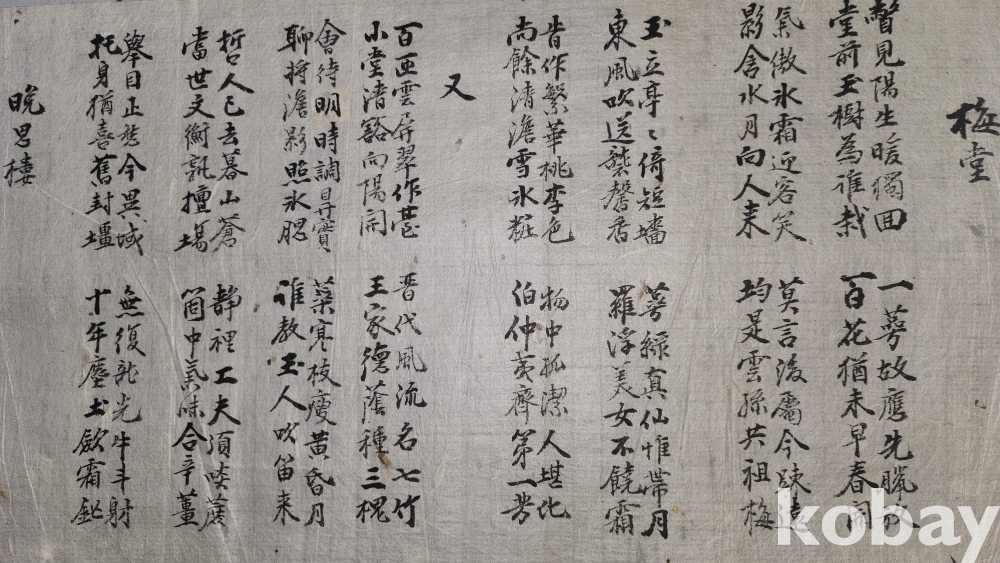 梅堂
暫見陽生暖獨回
堂前玉樹為誰栽
一萼故應先臘放
百花猶未早春開
氣傲氷霜迎客笑
影含水月向人来
莫言後屬今踈遠
均是雲孫共祖梅
玉立亭〻倚短墻
東風吹送襲馨香
萼綠真仙惟帶月
羅浮美女不饒霜
昔作繁華桃李色
尚餘清澹雪氷粧
物中孤潔人堪比
伯仲夷齊第一芳
又
百匝雲屏翠作臺
小堂清豁向陽開
晋代風流名七竹
王家德蔭種三槐
會待明時調鼎實
聊將澹影照氷腮
蘂寒枝瘦黄昏月
誰教玉人吹笛来
哲人已去暮山蒼
當世文衡孰擅場
靜裡工夫須啖蔗
箇中氣味合辛薑
擧目正愁今異域
托身猶喜舊封壃
無復龍光牛斗射
十年塵土歛霜鋩
晩思樓
kobay